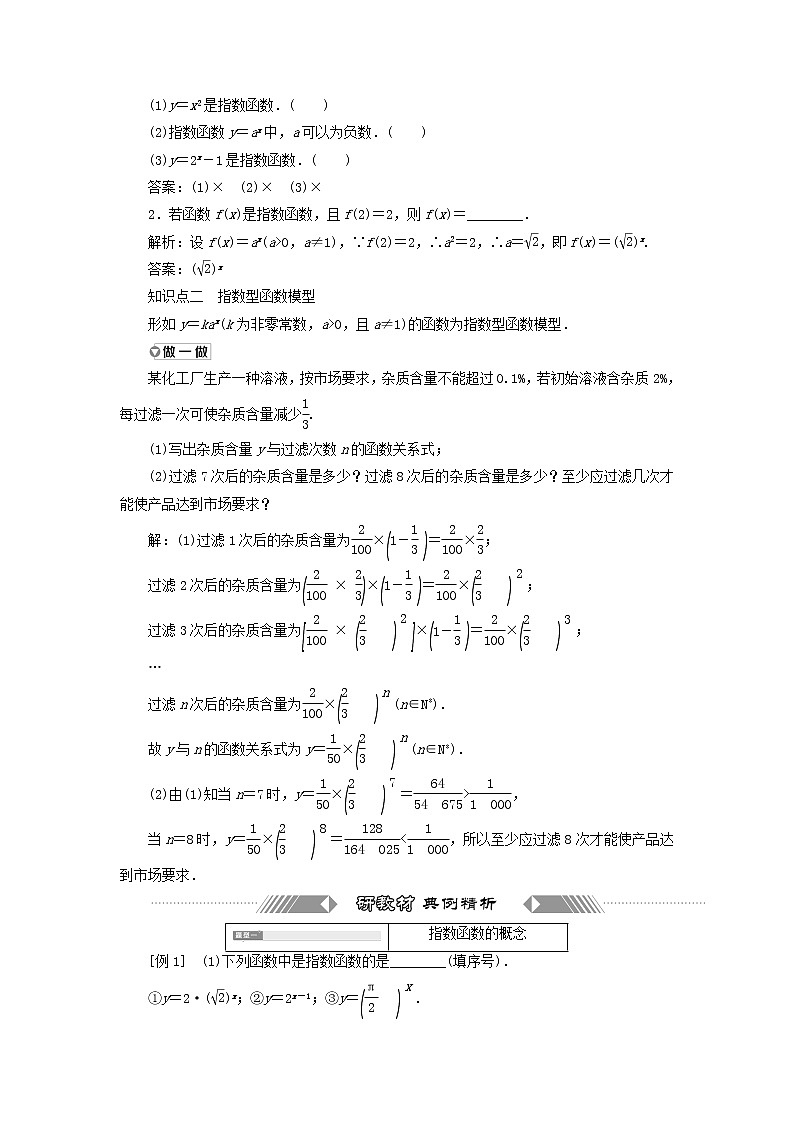 (1)y＝x²是指数函数.(　　)
(2)指数函数 y＝aˣ中，a可以为负数.(　　)
(3)y＝2ˣ－1是指数函数.(　　)
答案：(1)×　(2)×　(3)×
2．若函数 f(x)是指数函数，且 f(2)＝2，则 f(x)＝________.
解析：设 f(x)＝aˣ(a>0，a≠1)，∵f(2)＝2，∴a²＝2，∴a＝√2，即 f(x)＝(√2)ˣ.
答案：(√2)ˣ
知识点二　指数型函数模型
形如 y＝kaˣ(k为非零常数，a>0，且 a≠1)的函数为指数型函数模型.
做一做
某化工厂生产一种溶液，按市场要求，杂质含量不能超过0.1%，若初始溶液含杂质2%，
每过滤一次可使杂质含量减少1/3.
(1)写出杂质含量 y与过滤次数 n的函数关系式；
(2)过滤7次后的杂质含量是多少？过滤8次后的杂质含量是多少？至少应过滤几次才
能使产品达到市场要求？
解：(1)过滤1次后的杂质含量为2/100×(1－1/3)＝2/100×2/3；
过滤2次后的杂质含量为(2/100×2/3)×(1－1/3)＝2/100×(2/3)²；
过滤3次后的杂质含量为[2/100×(2/3)²]×(1－1/3)＝2/100×(2/3)³；
…
过滤 n次后的杂质含量为2/100×(2/3)ⁿ(n∈N*).
故 y与 n的函数关系式为 y＝1/50×(2/3)ⁿ(n∈N*).
(2)由(1)知当 n＝7时，y＝1/50×(2/3)⁷＝64/54 675>1/1 000，
当 n＝8时，y＝1/50×(2/3)⁸＝128/164 025<1/1 000，所以至少应过滤8次才能使产品达
到市场要求.
研教材 典例精析
题型一 指数函数的概念
[例1]　(1)下列函数中是指数函数的是________(填序号).
①y＝2·(√2)ˣ；②y＝2ˣ⁻¹；③y＝(π/2)ˣ.